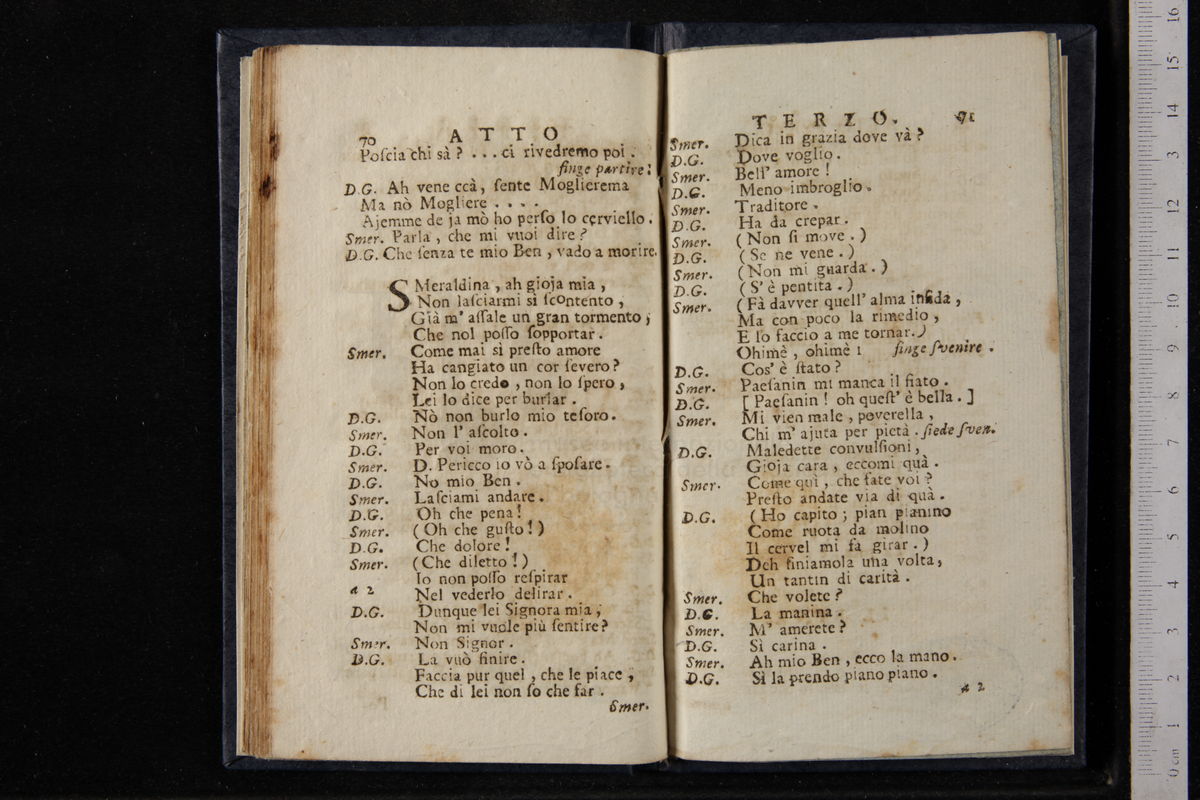 70 ATTO
Poſcia chi sà ? . . . ci rivedremo poi .
finge partire :
D.G. Ah vene ccà , ſente Moglierema
Ma nò Mogliere . . . .
Ajemme de ja mò ho perſo lo cerviello .
Smer. Parla , che mi vuoi dire ?
D.G. Che ſenza te mio Ben , vado a morire.
SMeraldina , ah gioja mia ,
Non laſciarmi sì ſcontento ,
Già m' aſſale un gran tormento ,
Che nol poſſo ſopportar .
Smer. Come mai sì preſto amore
Ha cangiato un cor ſevero ?
Non lo credo , non lo ſpero ,
Lei lo dice per burlar .
D.G. Nò non burlo mio teſoro .
Smer. Non l' aſcolto .
D.G. Per voi moro .
Smer. D. Pericco io vò a ſpoſare .
D.G. No mio Ben .
Smer. Laſciami andare .
D.G. Oh che pena !
Smer. ( Oh che guſto ! )
D.G. Che dolore !
Smer. ( Che diletto ! )
Io non poſſo reſpirar
a 2
Nel vederlo delirar .
D.G. Dunque lei Signora mia ,
Non mi vuole più ſentire ?
Smer. Non Signor .
D.G. La vuò finire .
Faccia pur quel , che le piace ,
Che di lei non ſo che far .
Smer.
TERZO. 71
Smer. Dica in grazia dove và ?
D.G. Dove voglio .
Smer. Bell' amore !
D.G. Meno imbroglio .
Smer. Traditore .
D.G. Ha da crepar .
Smer. ( Non ſi move . )
D.G. ( Se ne vene . )
Smer. ( Non mi guarda . )
D.G. ( S' è pentita . )
Smer. ( Fà davver quell' alma infida ,
Ma con poco la rimedio ,
E lo faccio a me tornar. )
Ohimè , ohimè ! finge ſvenire .
D.G. Cos' è ſtato ?
Smer. Paeſanin mi manca il fiato .
D.G. [ Paeſanin ! oh queſt' è bella . ]
Smer. Mi vien male , poverella ,
Chi m' ajuta per pietà . ſiede ſven.
D.G. Maledette convulſioni ,
Gioja cara , eccomi quà .
Smer. Come quì , che fate voi ?
Preſto andate via di quà .
D.G. ( Ho capito ; pian pianino
Come ruota da molino
Il cervel mi fa girar . )
Deh finiamola una volta ,
Un tantin di carità .
Smer. Che volete ?
D.G. La manina .
Smer. M' amerete ?
D.G. Sì carina .
Smer. Ah mio Ben , ecco la mano .
D.G. Sì la prendo piano piano .
a 2
0 cm 1 2 3 4 5 6 7 8 9 10 11 12 13 14 15 16